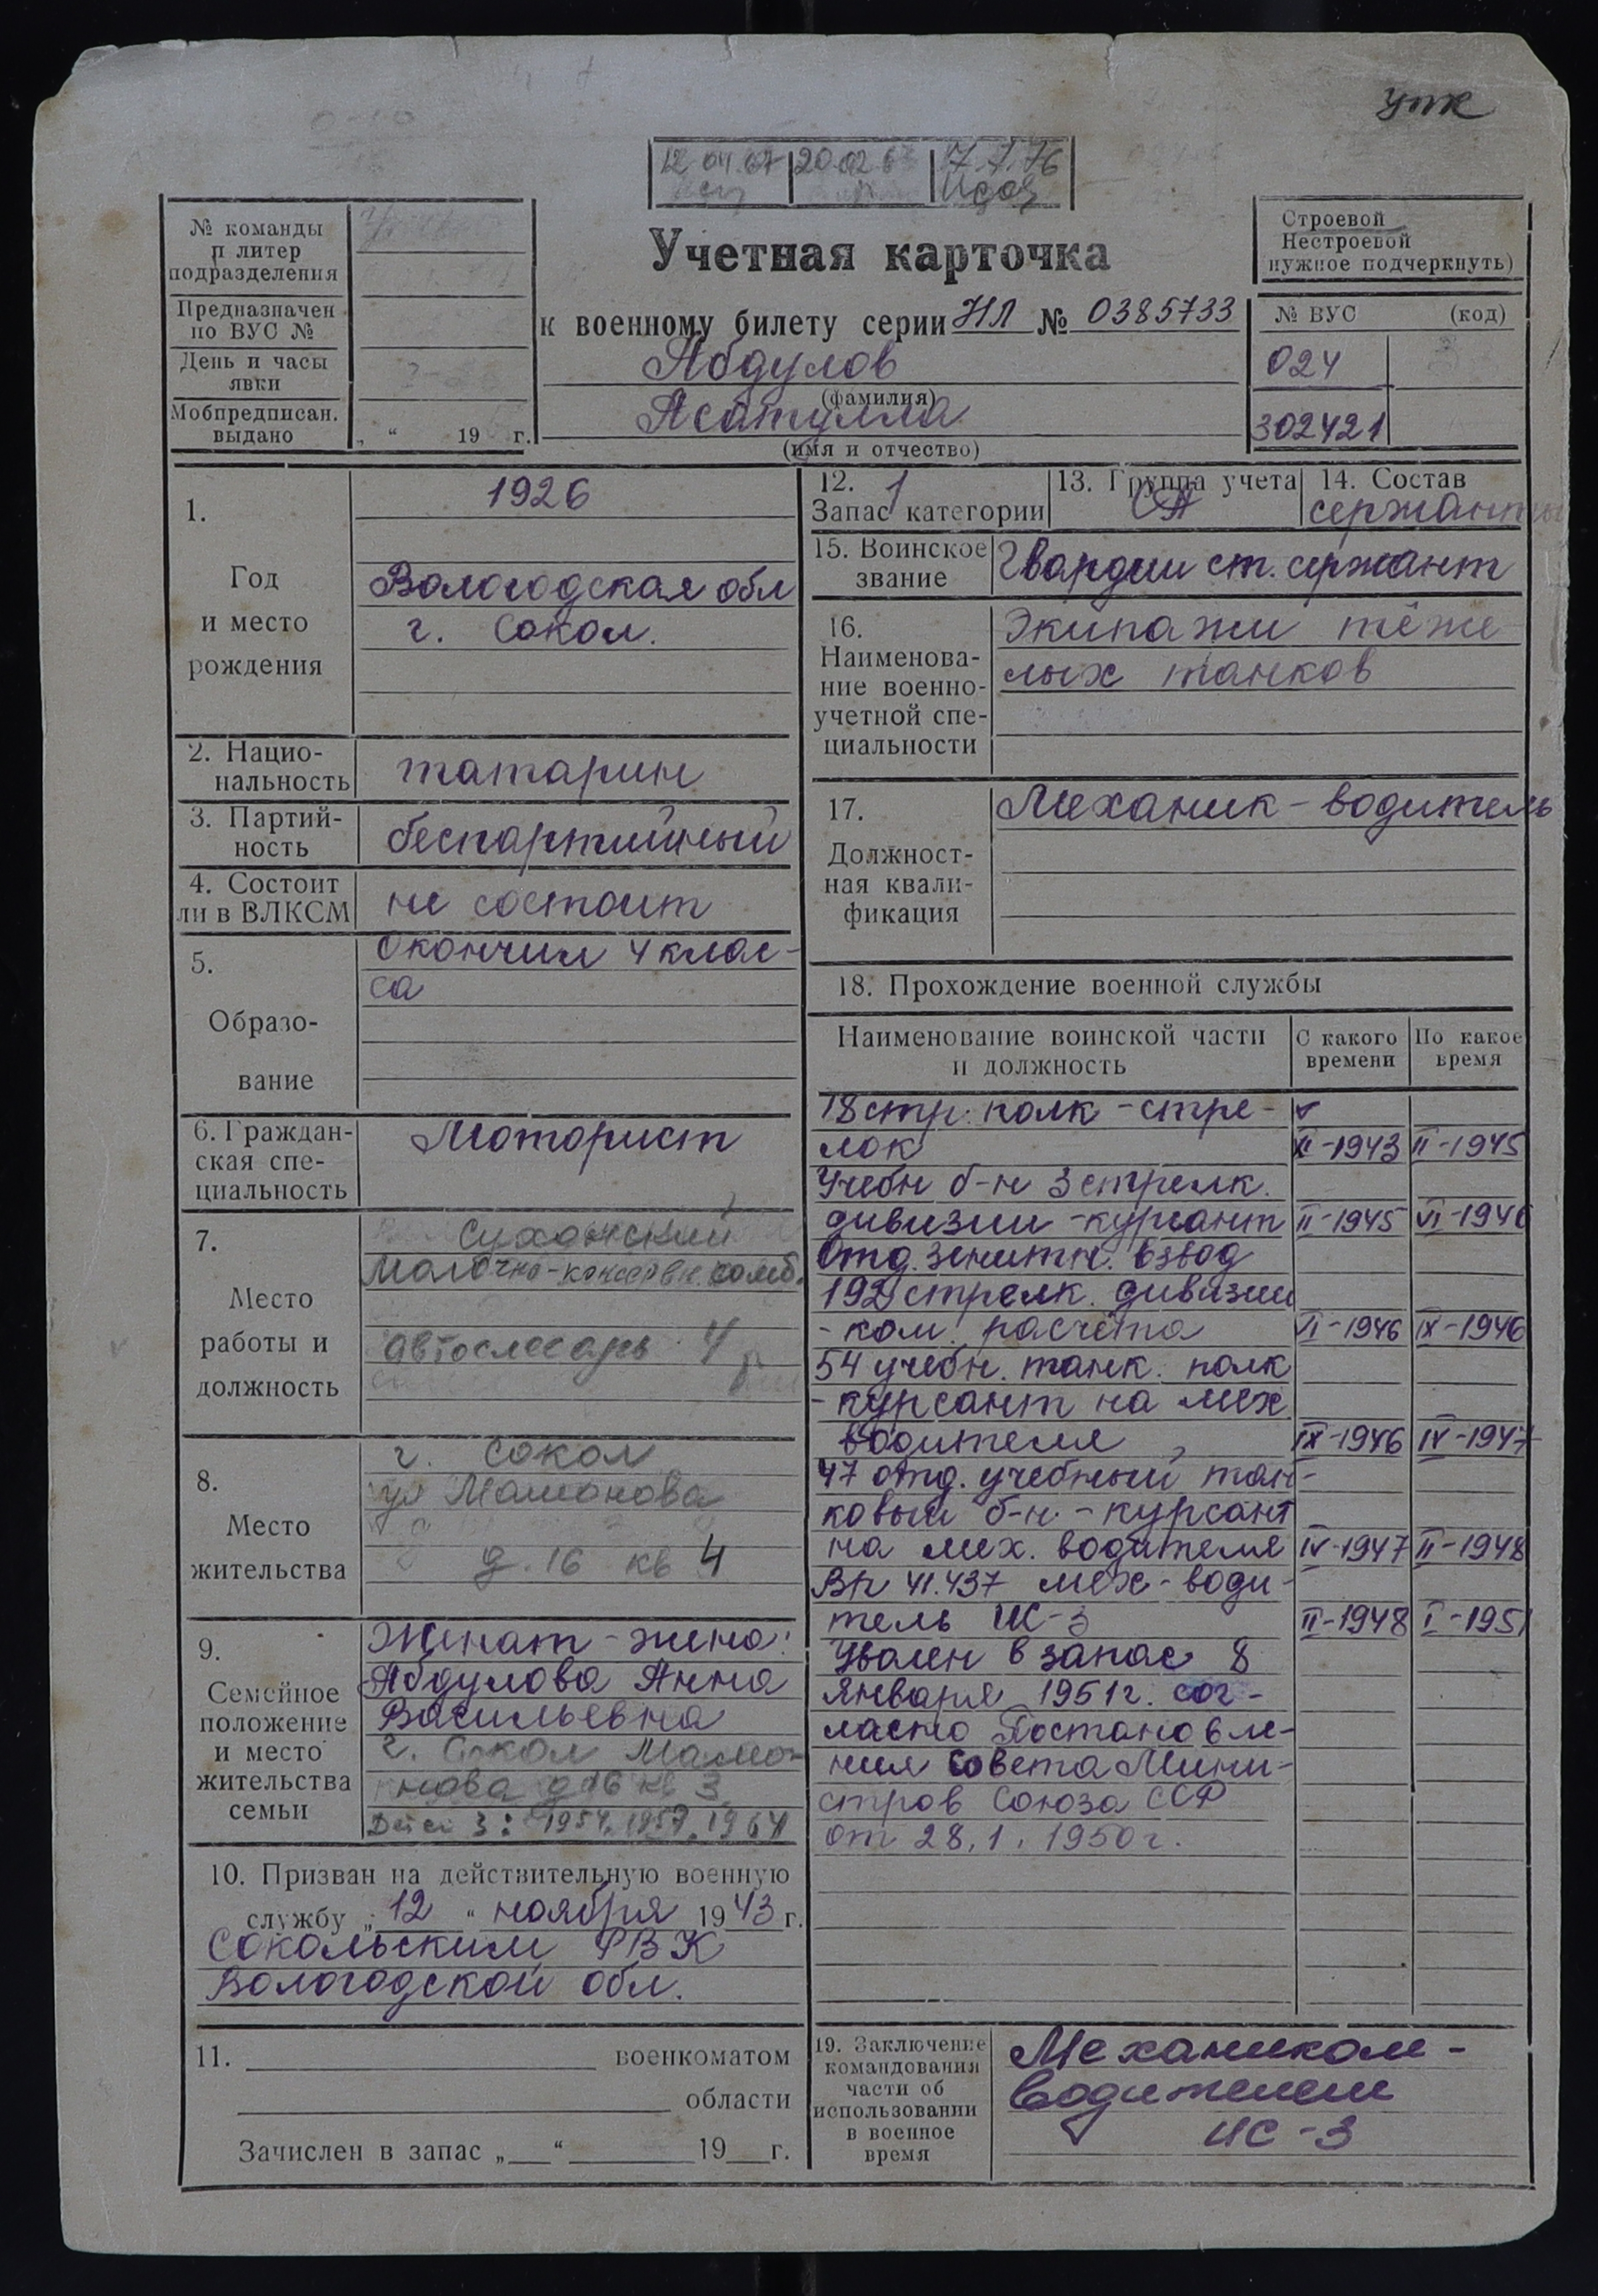 упк
12.04.67 20.02.6 7.1.76
№ команды
и литер
подразделения
Предназначен
по ВУС №
День и часы
явки
Мобпредписан.
выдано
„ “ 19 г.
Учетная карточка
к военному билету серии НЛ № 0385733
Абдулов
(фамилия)
Асатулла
(имя и отчество)
Строевой
Нестроевой
нужное подчеркнуть)
№ ВУС (код)
024
302421
1.
Год
и место
рождения
1926
Вологодская обл
г. Сокол.
2. Нацио-
нальность
татарин
3. Партий-
ность
беспартийный
4. Состоит
ли в ВЛКСМ
не состоит
5.
Образо-
вание
Окончил 4 клас-
са
6. Граждан-
ская спе-
циальность
Моторист
7.
Место
работы и
должность
Сухонский
Молочно-консервн. комб.
автослесарь 4
8.
Место
жительства
г. Сокол
ул Мамонова
д. 16 кв 4
9.
Семейное
положение
и место
жительства
семьи
Женат - жена:
Абдулова Анна
Васильевна
г. Сокол Мамо-
нова д 16 кв 3
Детей 3: 1954, 1957, 1964
10. Призван на действительную военную
службу „ 12 “ ноября 1943 г.
Сокольским РВК
Вологодской обл.
11. военкоматом
области
Зачислен в запас „ “ 19 г.
12. 1
Запас категории
13. Группа учета
СА
14. Состав
сержанты
15. Воинское
звание
Гвардии ст. сержант
16.
Наименова-
ние военно-
учетной спе-
циальности
Экипажи тяже
лых танков
17.
Должност-
ная квали-
фикация
Механик - водитель
18. Прохождение военной службы
Наименование воинской части
и должность
С какого
времени
По какое
время
18 стр. полк - стре-
лок XI-1943 II-1945
Учебн б-н 3 стрелк.
дивизии - курсант II-1945 VI-1946
Отд. зенитн. взвод
192 стрелк. дивизии
- ком. расчёта VI-1946 IX-1946
54 учебн. танк. полк
- курсант на мех
водителя IX-1946 IV-1947
47 отд. учебный тан-
ковый б-н - курсант
на мех. водителя IV-1947 II-1948
В/ч 41.437 мех- води-
тель ИС-3 II-1948 I-1951
Уволен в запас 8
января 1951 г. сог-
ласно Постановле-
ния Совета Мини-
стров Союза ССР
от 28.1.1950 г.
19. Заключение
командования
части об
использовании
в военное
время
Механиком -
водителем
ИС-3